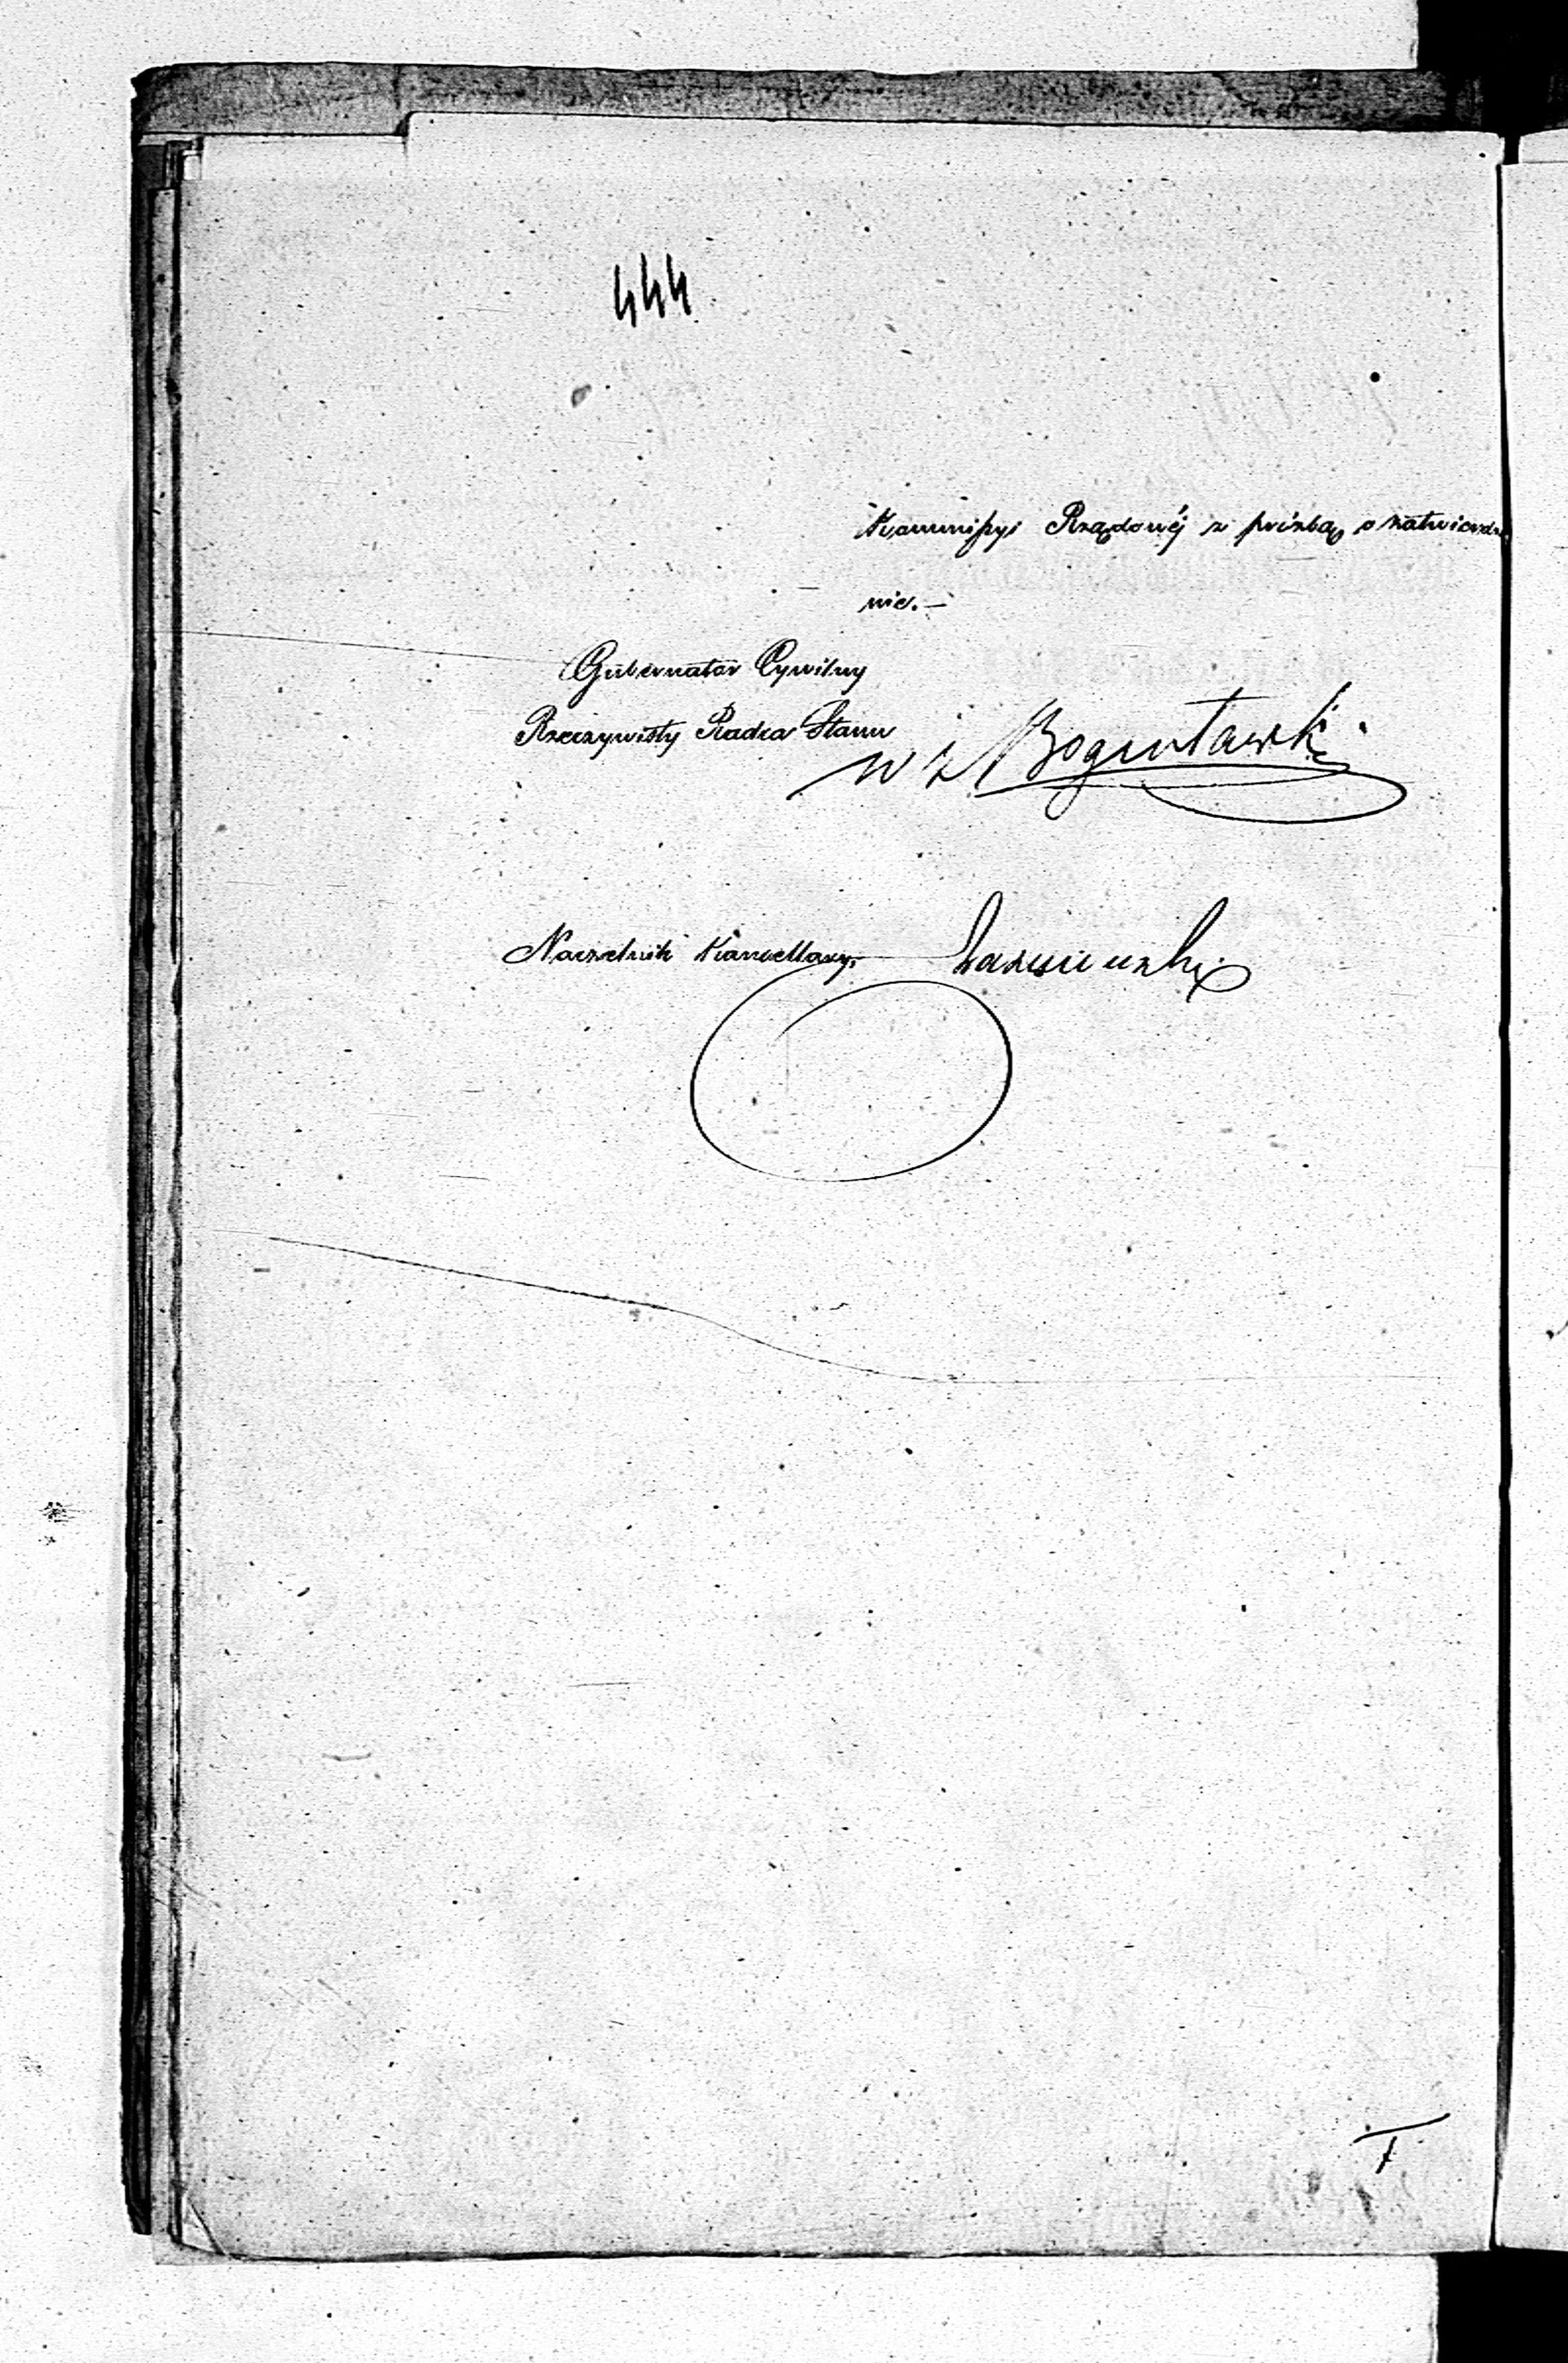 444
Kommissyi Rządowéj z prośbą o zatwierdze
nie. —
Gubernator Cywilny
Rzeczywisty Radca Stanu
w z Bogusławski
Naczelnik Kancellaryi